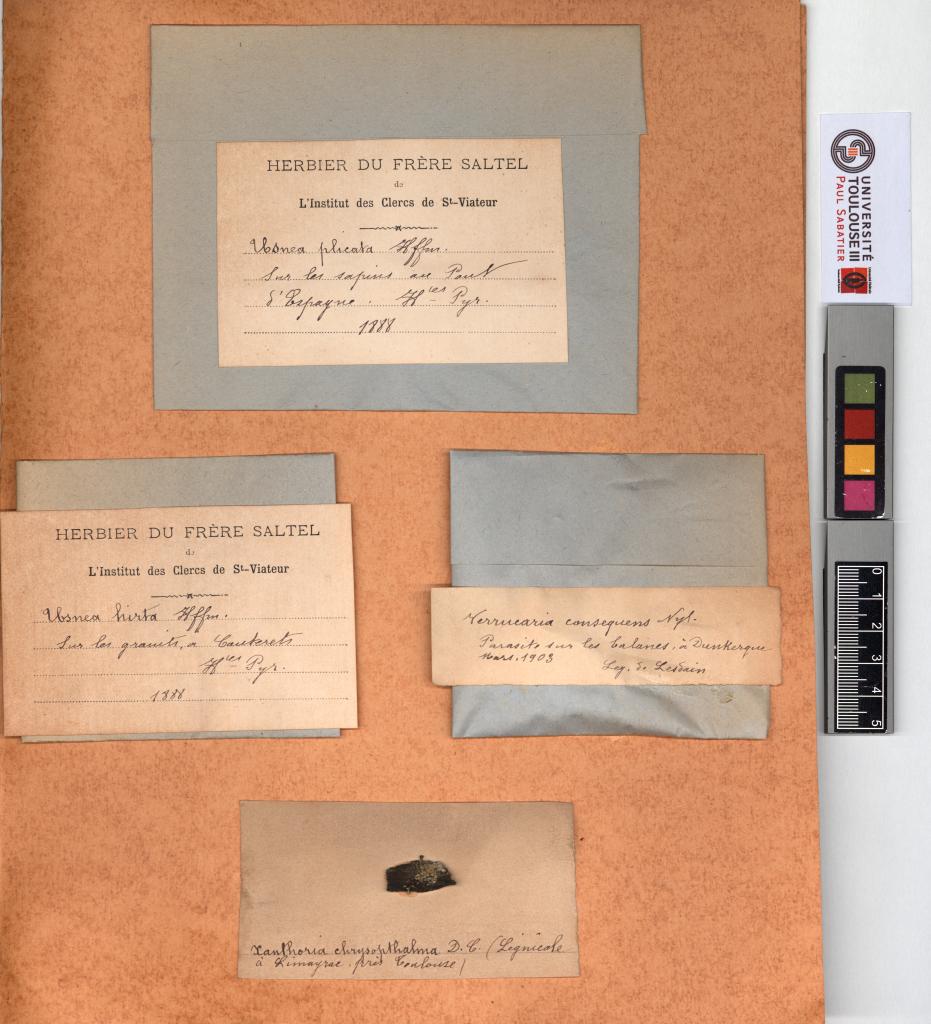 HERBIER DU FRÈRE SALTEL
de
L'Institut des Clercs de St-Viateur
Usnea plicata Hffm.
Sur les sapins au Pont
d'Espagne. Htes Pyr.
1888
HERBIER DU FRÈRE SALTEL
de
L'Institut des Clercs de St-Viateur
Usnea hirta Hffm.
Sur les granits, à Cauterets
Htes Pyr.
1888
Verrucaria consequens Nyl.
Parasite sur les balanes, à Dunkerque
Mars, 1903 Leg. de Lesdain
Xanthoria chrysopthalma D.C. (Lignicole
à Limayrac, près Toulouse)
UNIVERSITÉ
TOULOUSE III
PAUL SABATIER
0
1
2
3
4
5